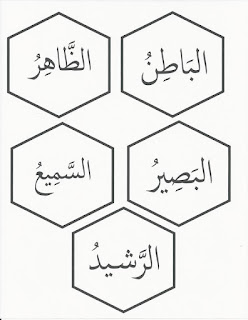 البَاطِنُ
الظَّاهِرُ
البَصِيرُ
السَّمِيعُ
الرَّشيدُ